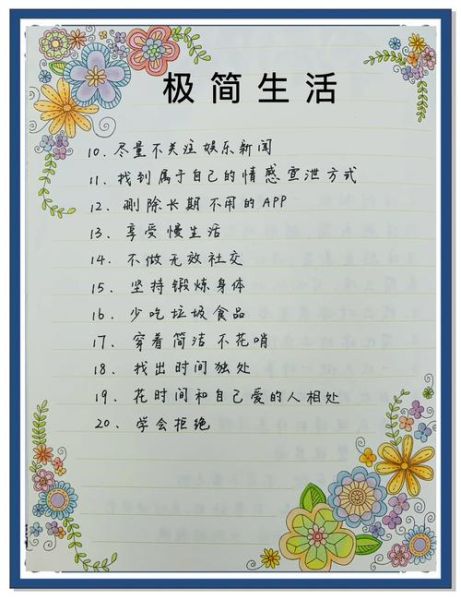 极简生活
10. 尽量不关注娱乐新闻
11. 找到属于自己的情感宣泄方式
12. 删除长期不用的APP
13. 享受慢生活
14. 不做无效社交
15. 坚持锻炼身体
16. 少吃垃圾食品
17. 穿着简洁不花哨
18. 找出时间独处
19. 花时间和自己爱的人相处
20. 学会拒绝